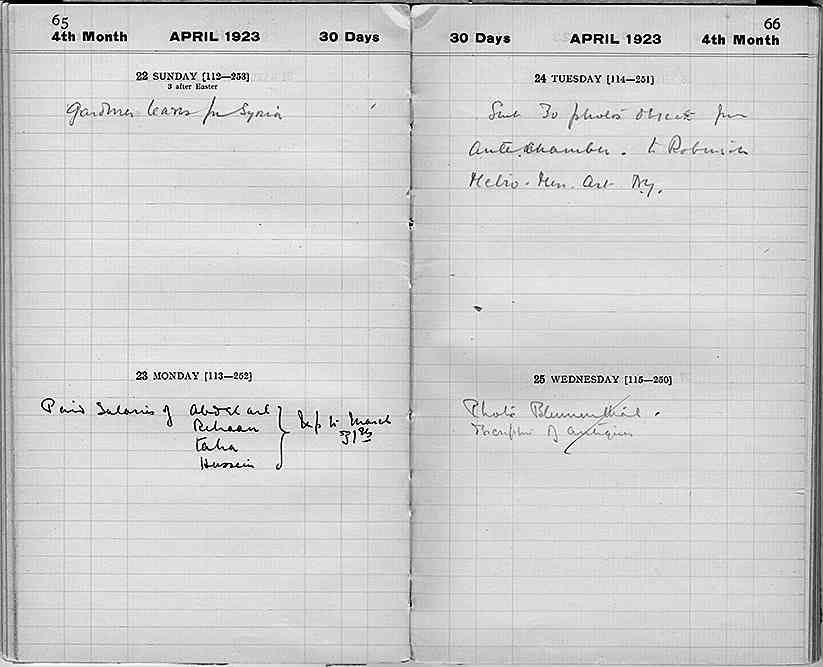 65
4th Month APRIL 1923 30 Days
22 SUNDAY [112—253]
3 after Easter
Gardiner leaves for Syria
23 MONDAY [113—252]
Paid Salaries of Abdel aal
Rihaan
Taha
Hussein
up to March
31st
66
30 Days APRIL 1923 4th Month
24 TUESDAY [114—251]
Sent 30 photos objects from
Antechamber. to Robinson
Metro. Mus. Art. N.y.
25 WEDNESDAY [115—250]
Photo Blumenthal.
of antiques